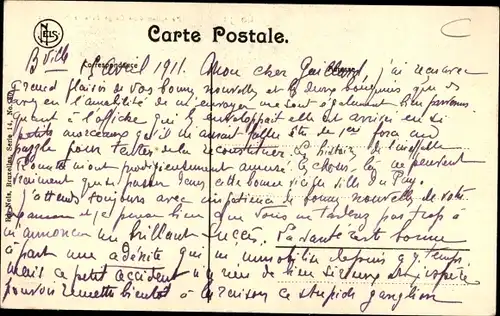 NELS
Carte Postale.
Correspondance
Bville avril 1911. Mon cher j'ai reçu avec
grand plaisir de vos bonnes nouvelles et les deux bouquins que vous
avez eu l'amabilité de m'envoyer me sont également bien parvenus.
Quant à l'affiche qui les enveloppait elle est arrivée en si
petits morceaux qu'il aurait fallu être de 1ère force au
puzzle pour tenter de la reconstituer. Les histoires de
m'ont prodigieusement amusé. Ces choses-là ne peuvent
vraiment que se passer dans cette bonne vieille ville du Puy.
J'attends toujours avec impatience de bonnes nouvelles de votre
examen et je pense bien que vous ne tarderez pas trop à
m'annoncer un brillant succès. Ma santé est bonne
à part une adénite qui m' immobilise depuis q.q. temps.
Mais ce petit accident n'a rien de bien sérieux et j'espère
pouvoir remettre bientôt à la raison ce stupide ganglion
Nels, Bruxelles, Serie 14, No.